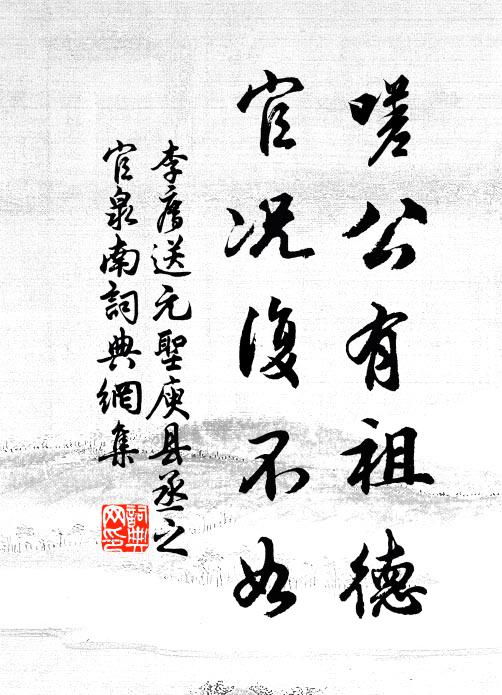 嗟公有祖德
官况復不如
李廌送元聖庾县丞之
官泉南詞典網集
詞典
网印